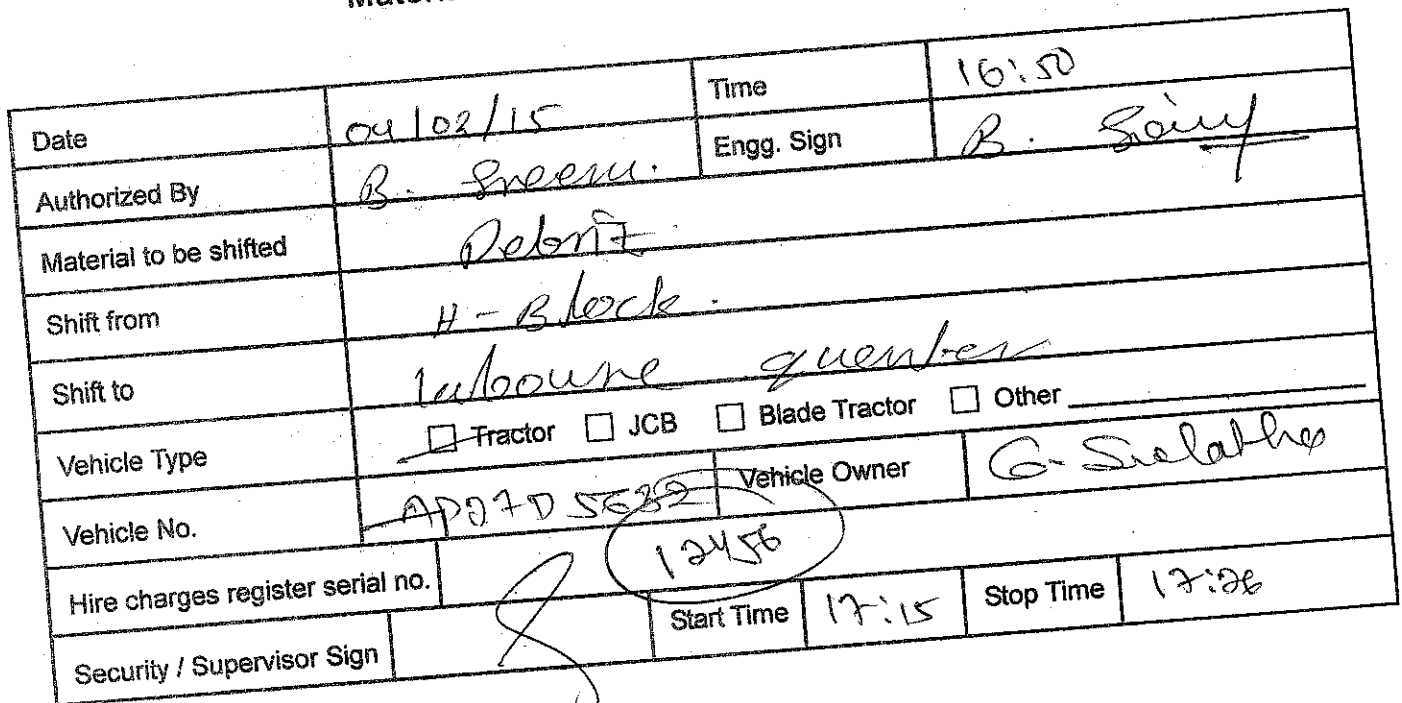 Date 04/02/15 Time 16:50
Authorized By B. Sreenu. Engg. Sign B.
Material to be shifted Debris
Shift from H-Block.
Shift to laboure quarters
Vehicle Type ☐ Tractor ☐ JCB ☐ Blade Tractor ☐ Other
Vehicle No. AP27D 5632 Vehicle Owner G. Srilatha
Hire charges register serial no. 12456
Security / Supervisor Sign Start Time 17:15 Stop Time 17:26